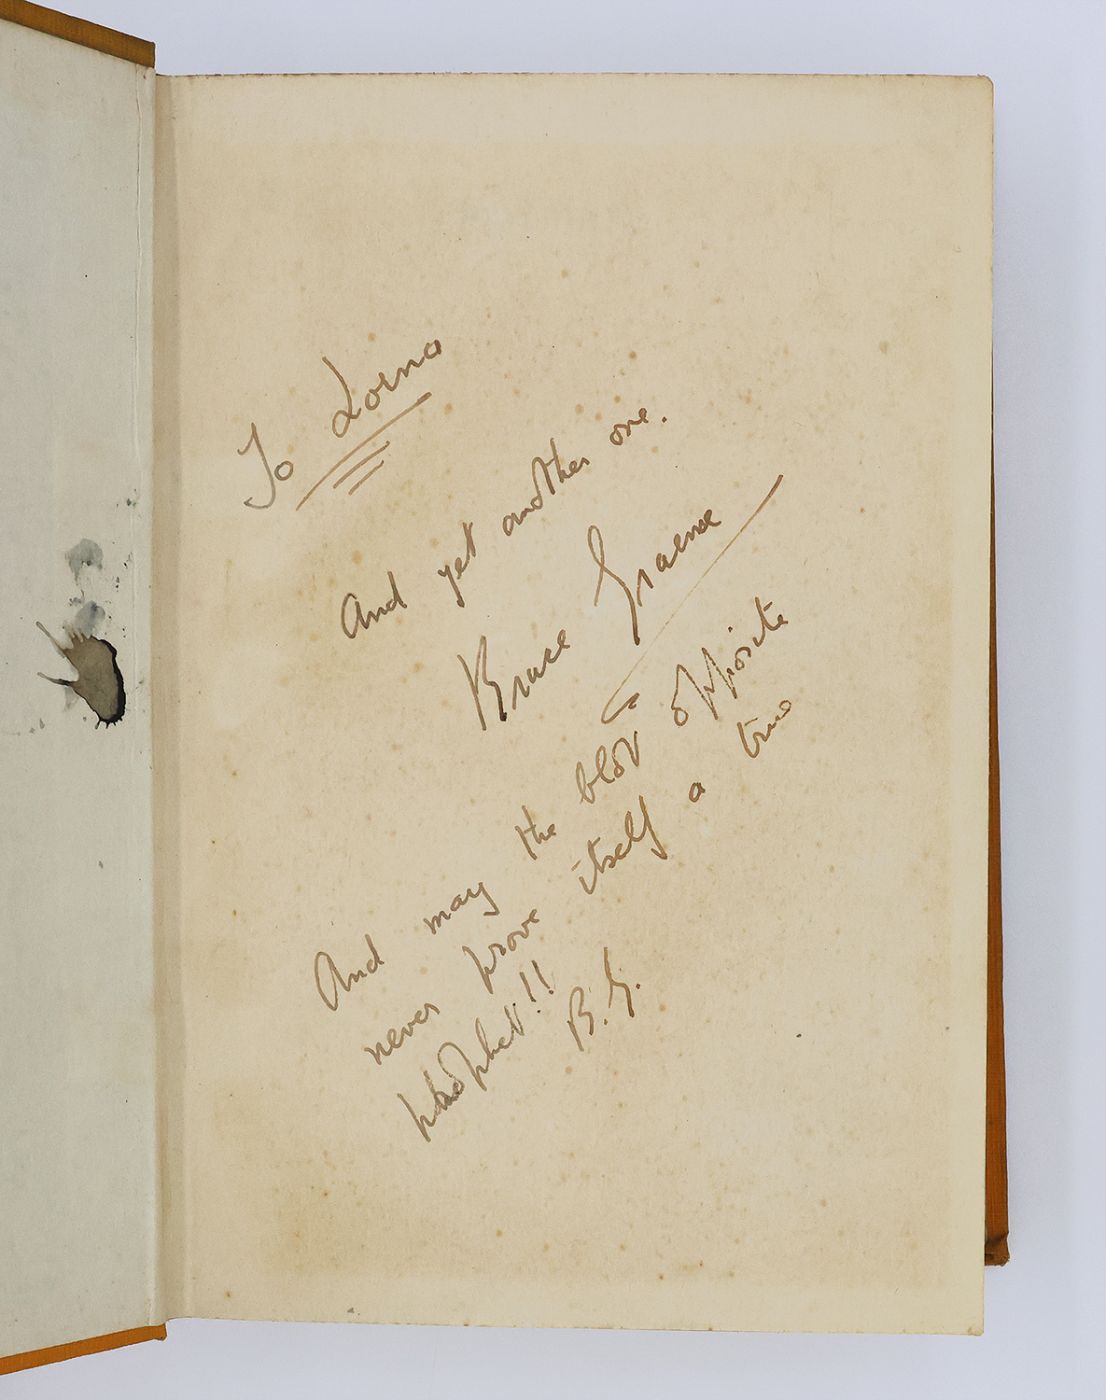 To Lorna
And yet another one.
Bruce Graeme
And may the blot opposite
never prove itself a true
prophet!!
B.G.